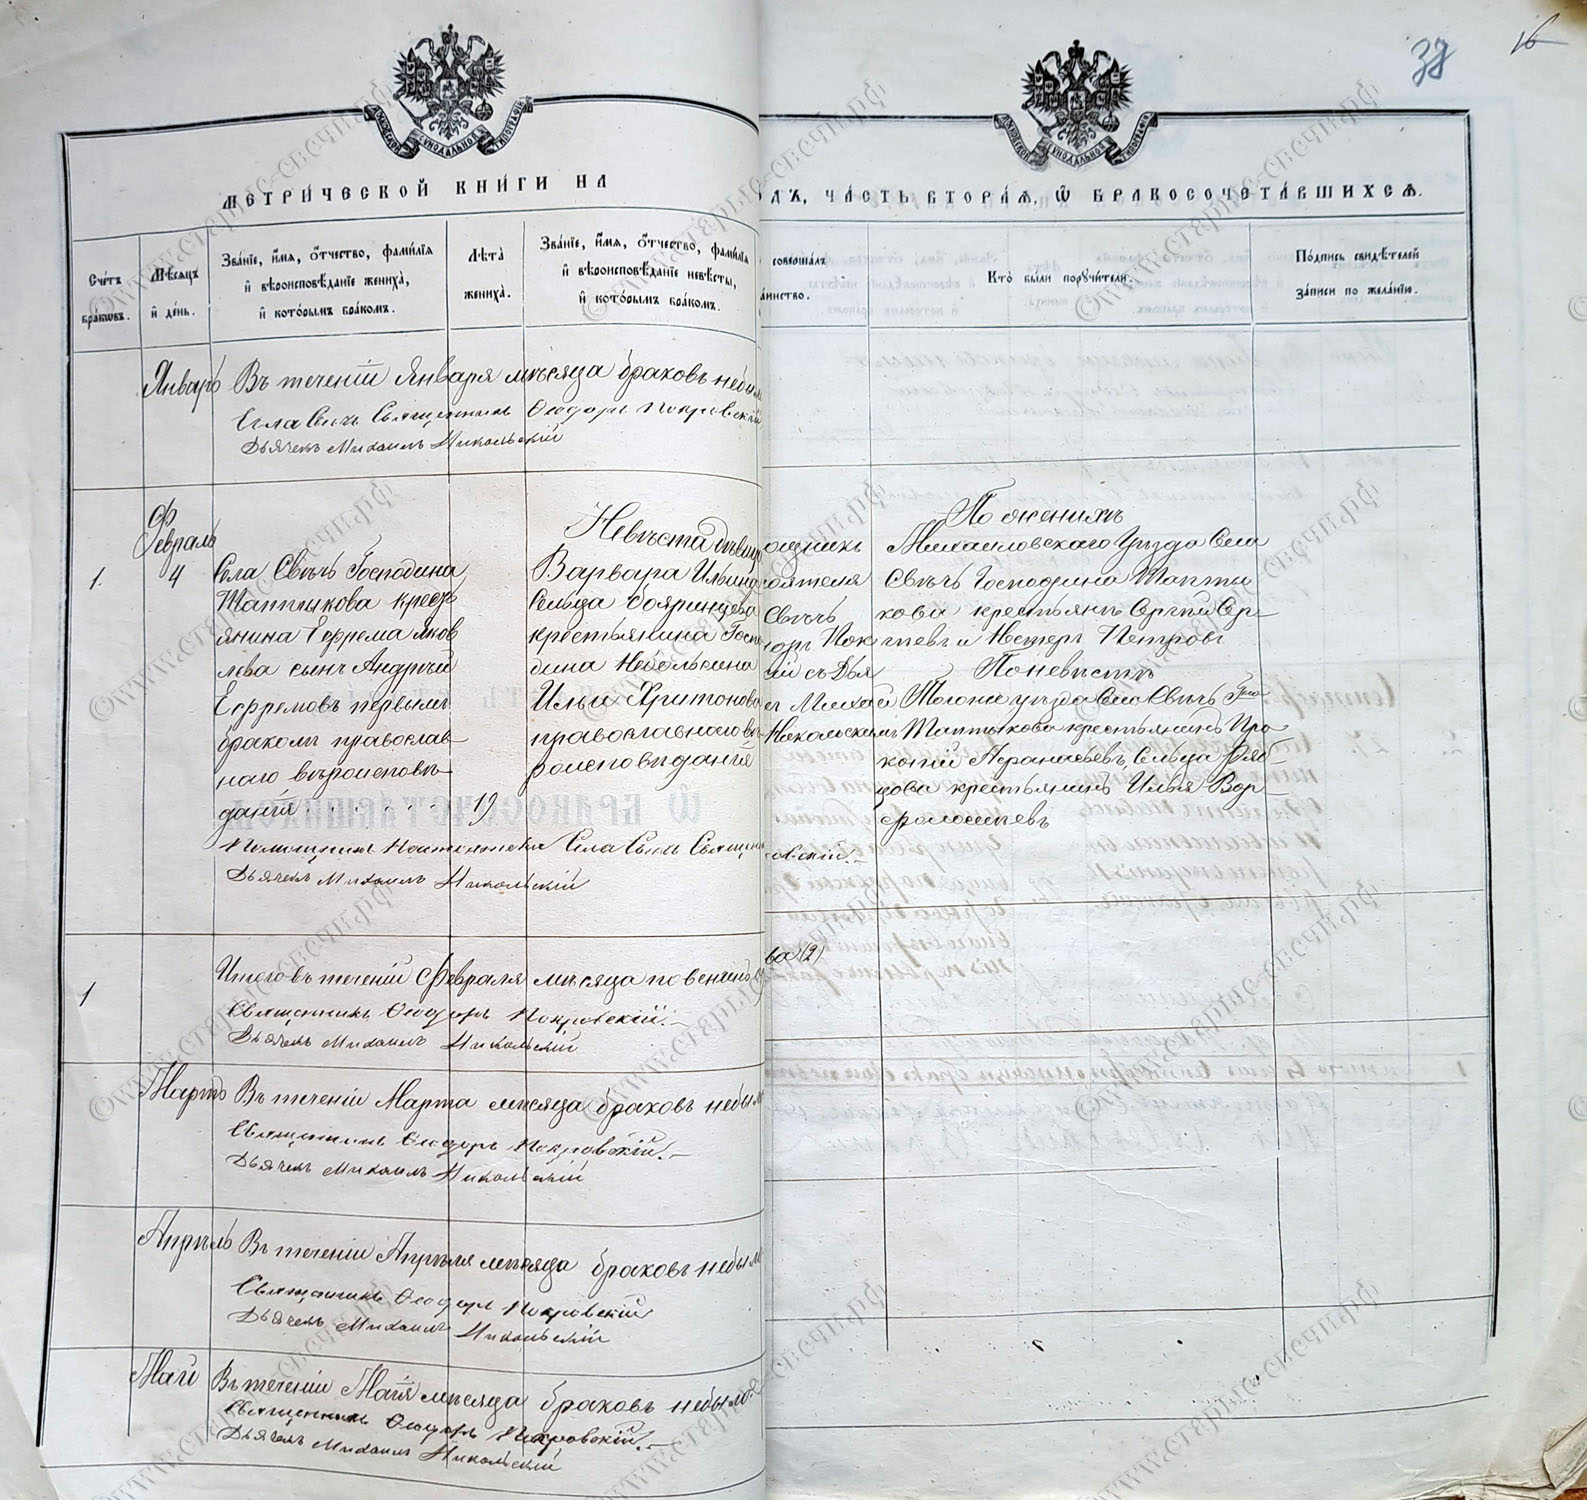 38
16
МЕТРИ́ЧЕСКОЙ КНИ́ГИ НА
ОДЪ, ЧА́СТЬ ВТОРА́Я, Ѽ БРАКОСОЧЕТА́ВШИХСЯ.
Сче́тъ бра́ковъ.
Мѣ́сяцъ и҆ де́нь.
Зва́нїе, и҆́мя, ѻ҆́тчество, фами́лїя
и҆ вѣроисповѣ́данїе жениха̀,
и҆ кото́рымъ бра́комъ.
Лѣта̀
жениха̀.
Зва́нїе, и҆́мя, ѻ҆́тчество, фами́лїя
и҆ вѣроисповѣ́данїе невѣ́сты,
и҆ кото́рымъ бра́комъ.
соверша́лъ
та́инство.
Кто̀ бы́ли поручи́тели.
По́дпись свидѣ́телей
за́писи по жела́нїю.
Январь Въ теченіи Января мѣсяца браковъ небыл
Села Свѣчъ Священникъ Ѳеодоръ Покровскій
Дьячекъ Михаилъ Никольскій
Февраль
1. 4
Села Свѣчъ Господина
Таптыкова крестъ
янина Ефрема Яков
лева сынъ Андрей
Ефремовъ первымъ
бракомъ православ
наго вѣроисповѣ
данія
19
Невѣста дѣвица
Варвара Ильина
Сельца Бояринцева
крестьянина Госпо
дина Небольсина
Ильи Харитонова
православнаго вѣ
роисповѣданія
омщикъ
тоятеля
Свѣчъ
доръ Пок
ій съ Дья
ъ Михаи
Никольскимъ
По женихѣ
Михаиловскаго Уѣзда Села
Свѣчъ Господина Тапты
кова крестьянъ Сергѣй Сер
гѣевъ и Нестеръ Петровъ
По невѣстѣ
Того же уѣзда Села Свѣчъ Гна
Таптыкова крестьянинъ Про
копій Аѳанасьевъ, Сельца Ряб
цова крестьянинъ Илья Вар
фоломѣевъ
Помощникъ Настоятеля Села Свѣчъ Священ
овскій.
Дьячекъ Михаилъ Никольскій
1
Итого въ теченіи Февраля мѣсяца повенчано
ва (2)
Священникъ Ѳеодоръ Покровскій.
Дьячекъ Михаилъ Никольскій
Мартъ Въ теченіи Марта мѣсяца браковъ небыл
Священникъ Ѳеодоръ Покровскій.
Дьячекъ Михаилъ Никольскій
Апрѣль Въ теченіи Апрѣля мѣсяца браковъ небыл
Священникъ Ѳеодоръ Покровскій
Дьячекъ Михаилъ Никольскій
Май Въ теченіи Маія мѣсяца браковъ небыло
Священникъ Ѳеодоръ Покровскій.
Дьячекъ Михаилъ Никольскій